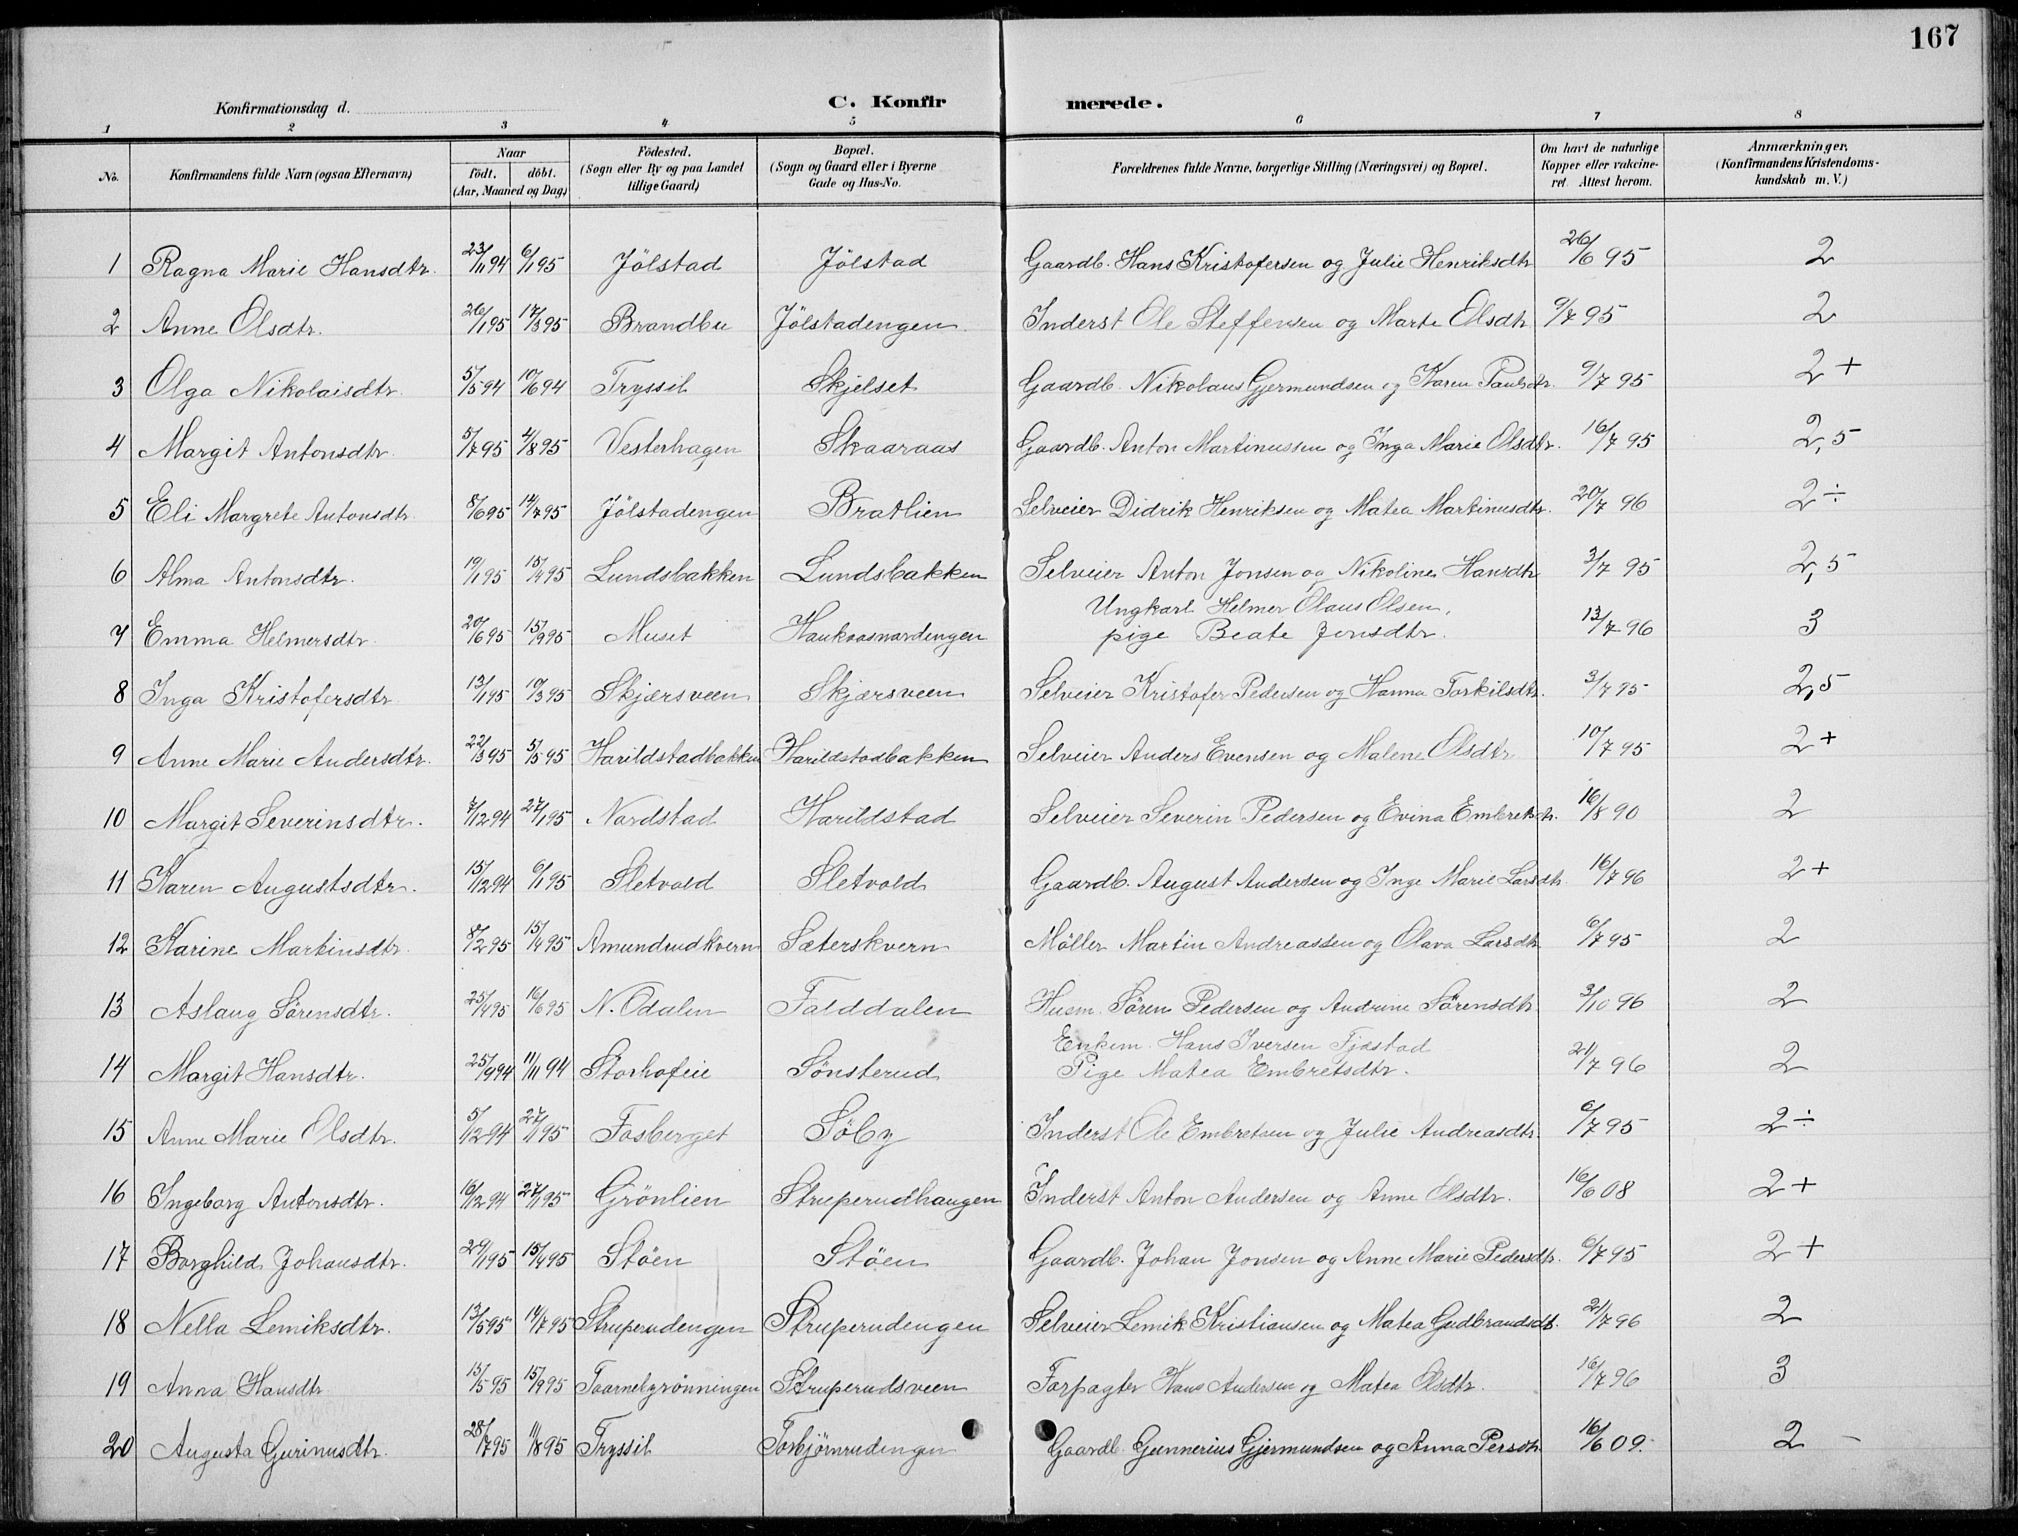 167
Konfirmationsdag d.
C. Konfirmerede.
1 2 3 4 5 6 7 8
No. Konfirmandens fulde Navn (ogsaa Efternavn) Naar født. døbt. (Aar, Maaned og Dag) Fødested. (Sogn eller By og paa Landet tillige Gaard) Bopæl. (Sogn og Gaard eller i Byerne Gade og Hus-No. Forældrenes fulde Navne, borgerlige Stilling (Næringsvei) og Bopæl. Om havt de naturlige Kopper eller vaccineret. Attest herom. Anmærkninger, (Konfirmandens Kristendomskundskab m. V.)
1 Ragna Marie Hansdtr. 23/11 94 6/1 95 Jölstad Jölstad Gaardb. Hans Kristofersen og Julie Henriksdtr 26/6 95 2
2 Anne Olsdtr. 26/1 95 17/3 95 Brandbu Jölstadengen Inderst Ole Steffensen og Marte Olsdtr 9/7 95 2
3 Olga Nikolaisdtr. 5/5 94 10/6 94 Tryssil Skjelset Gaardb. Nikolaus Gjermundsen og Karen Paulsdtr. 9/7 95 2+
4 Margit Antonsdtr. 5/7 95 4/8 95 Vesterhagen Skaaraas Gaardb. Anton Martinussen og Inga Marie Olsdtr. 16/7 95 2,5
5 Eli Margrete Antonsdtr. 8/6 95 14/7 95 Jölstadengen Bratlien Selveier Didrik Henriksen og Matea Martinusdtr. 20/7 96 2÷
6 Alma Antonsdtr. 19/1 95 15/4 95 Lundsbakken Lundsbakken Selveier Anton Jonsen og Nikoline Hansdtr 3/7 95 2,5
Ungkarl Helmer Olaus Olsen,
7 Emma Helmersdtr. 20/6 95 15/9 95 Muset Haukaasnardengen pige Beate Jensdtr. 13/7 96 3
8 Inga Kristofersdtr. 13/1 95 10/3 95 Skjærsveen Skjærsveen Selveier Kristofer Pedersen og Hanna Torkilsdtr. 3/7 95 2,5
9 Anne Marie Andersdtr. 22/3 95 5/5 95 Harildstadbakken Harildstadbakken Selveier Anders Evensen og Malene Olsdtr 10/7 95 2+
10 Margit Severinsdtr. 7/12 94 27/1 95 Nordstad Harildstad Selveier Severin Pedersen og Evina Embretsdtr. 16/8 90 2
11 Karen Augustsdtr. 15/12 94 6/1 95 Sletvold Sletvold Gaardb. August Andersen og Inge Marie Larsdtr. 16/7 96 2+
12 Karine Martinsdtr. 8/2 95 15/4 95 Amundrudkvern Sæterskvern Möller Martin Andreassen og Olava Larsdtr 6/7 95 2
13 Aslaug Sörensdtr. 25/4 95 16/6 95 N. Odalen Falddalen Husm. Sören Pedersen og Andrine Sörensdtr. 3/10 96 2
Enkem. Hans Iversen Tjostad
14 Margit Hansdtr. 25/9 94 11/11 94 Storhofeie Sönsterud Pige Matea Embretsdtr. 21/7 96 2
15 Anne Marie Olsdtr. 5/12 94 27/1 95 Fosberget Söby Inderst Ole Embretsen og Julie Andreasdtr. 6/7 95 2÷
16 Ingeborg Antonsdtr. 16/12 94 27/1 95 Grönlien Struperudhaugen Inderst Anton Andersen og Anne Olsdtr. 16/6 08 2+
17 Borghild Johansdtr. 29/1 95 15/4 95 Stöen Stöen Gaardb. Johan Jonsen og Anne Marie Pedersdtr. 6/7 95 2+
18 Nella Lemiksdtr. 13/5 95 14/7 95 Struperudengen Struperudengen Selveier Lemik Kristiansen og Matea Gudbrandsdt. 21/7 96 2
19 Anna Hansdtr 15/5 95 15/9 95 Taarnetgrönningen Struperudsveen Forpagter Hans Andersen og Matea Olsdtr. 16/7 96 3
20 Augusta Gurinusdtr. 28/7 95 11/8 95 Tryssil Torbjörnrudengen Gaardb. Gunnerius Gjermundsen og Anna Persdtr. 16/6 09. 2 -